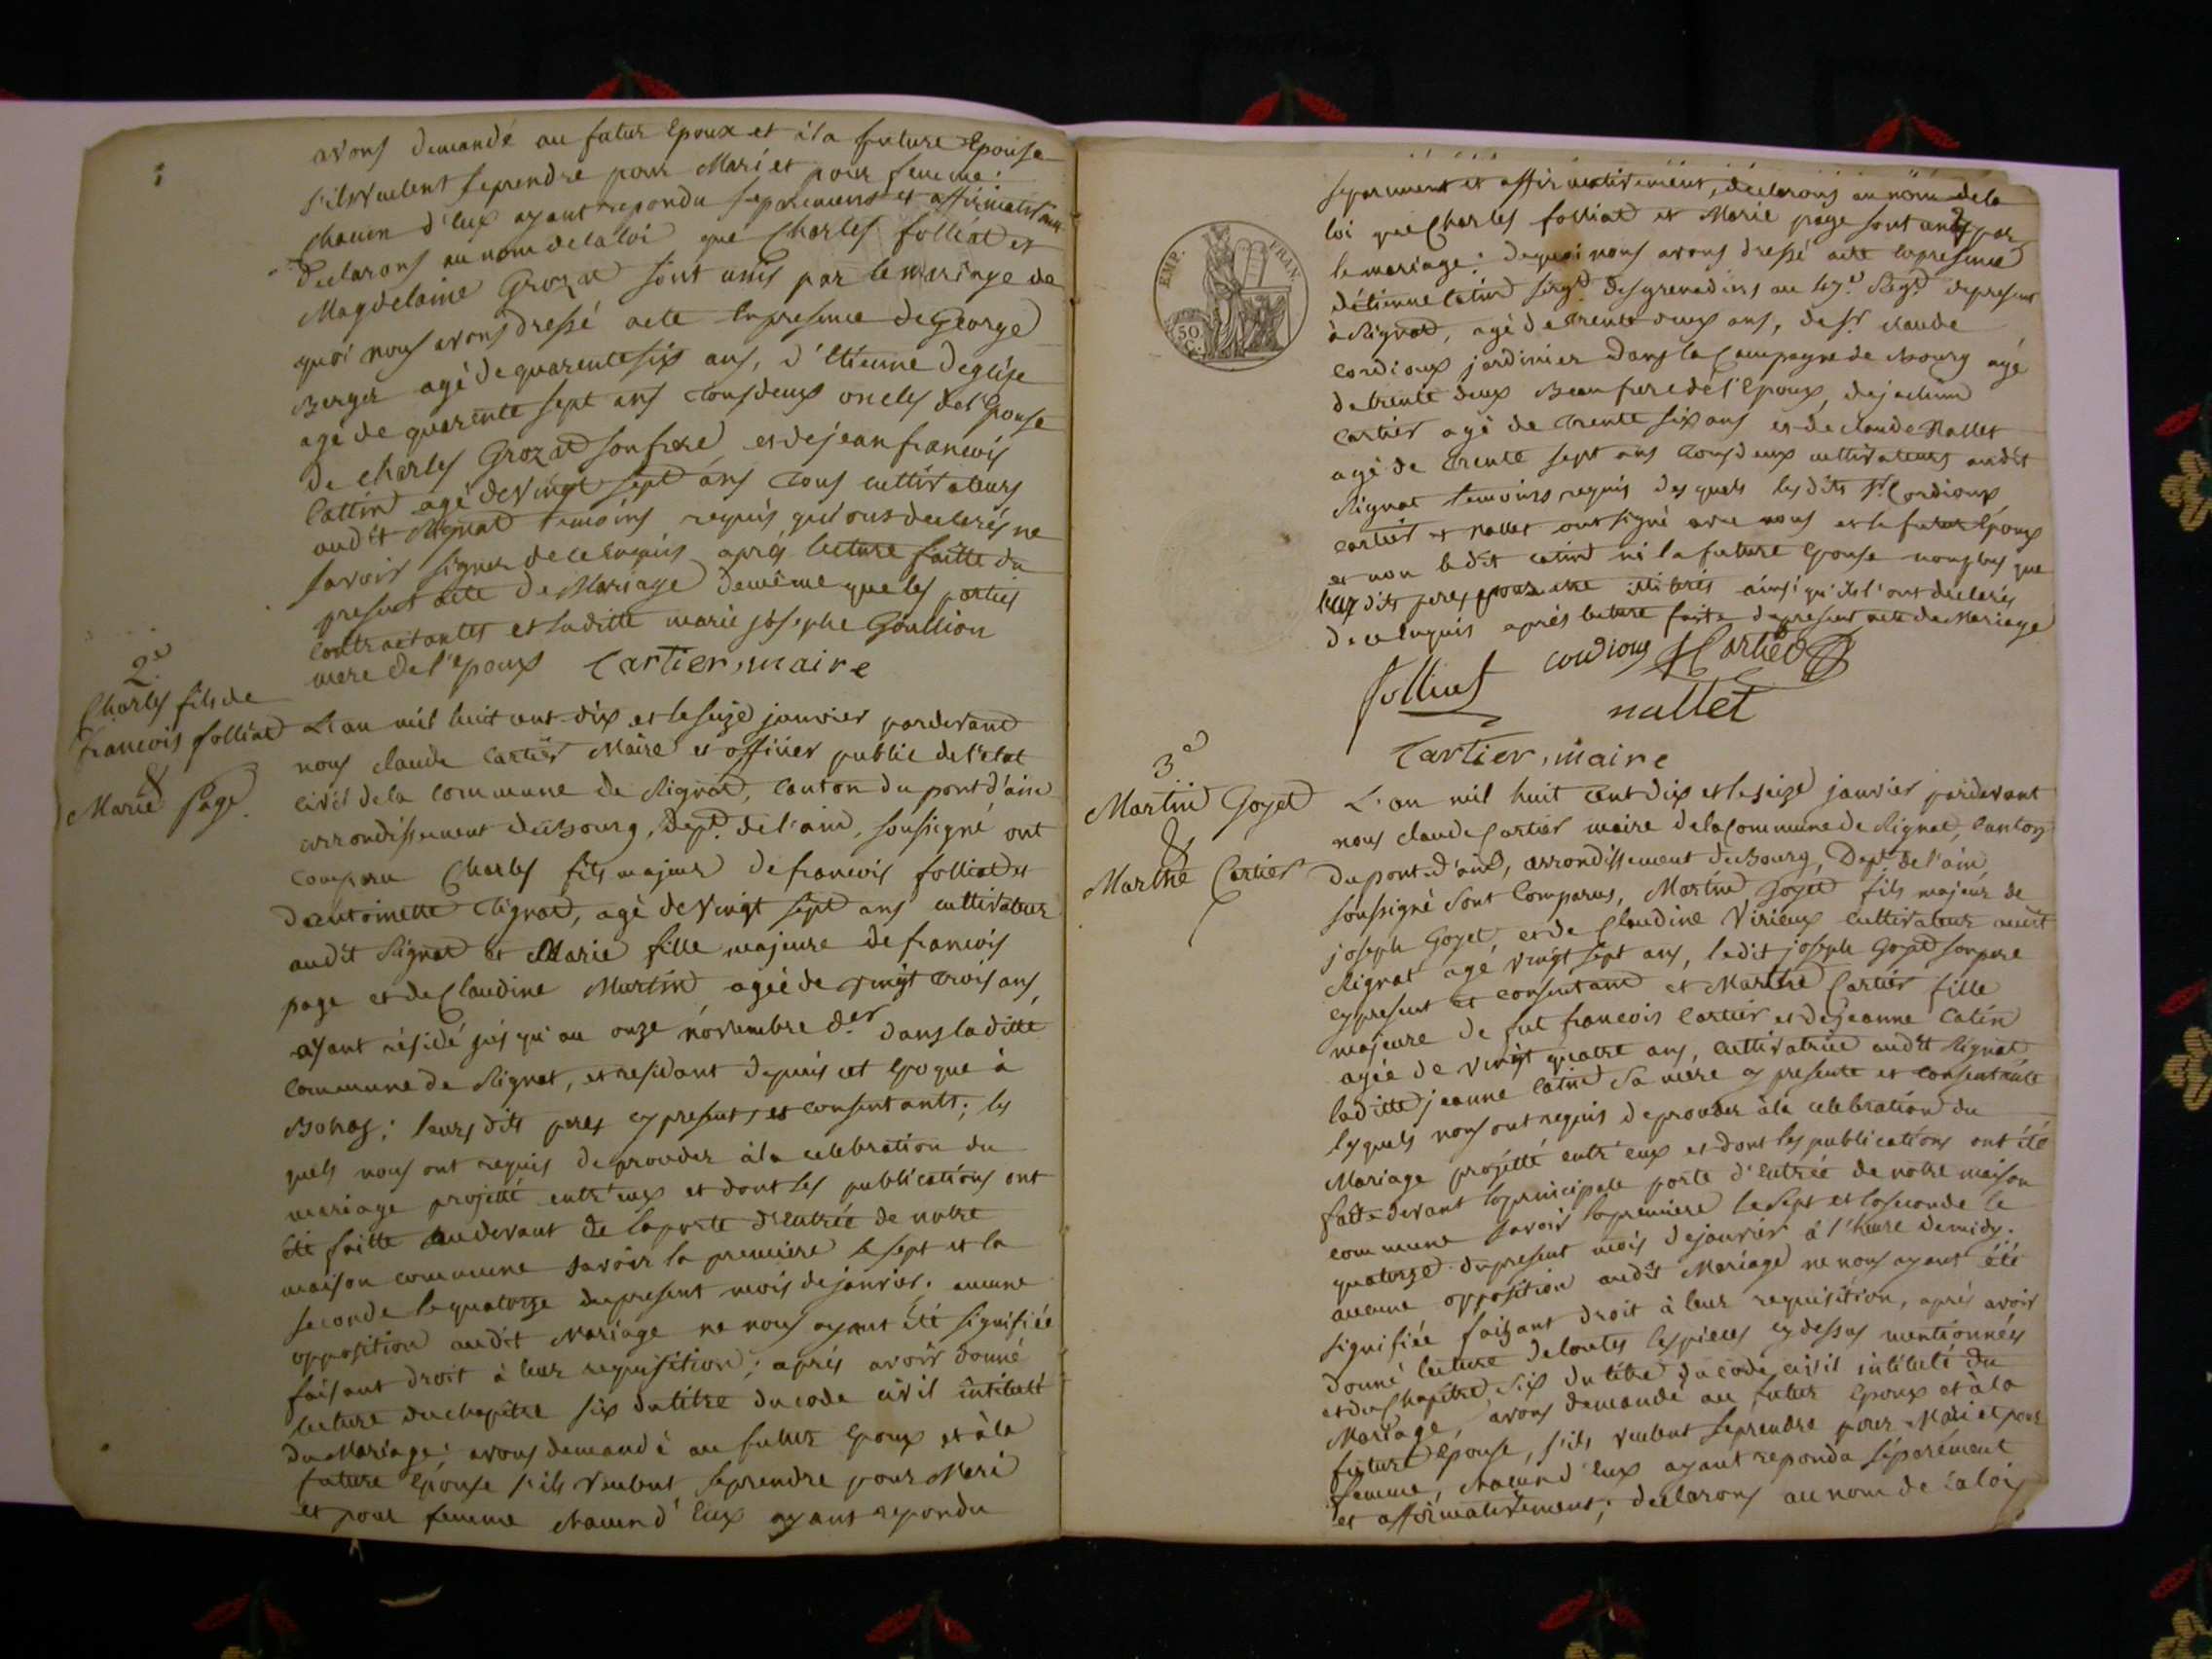 avons demandé au futur Epoux et à la future Epouse
s'ils veulent se prendre pour Mari et pour femme:
chacun d'eux ayant repondu separement et affirmativement
Declarons au nom de la loi que Charles folliat et
Magdelaine Grozat sont unis par le mariage de
quoi nous avons dressé acte En presence de George
Berger agé de quarente six ans, d'Etienne Deglise
agé de quarente sept ans tous deux oncles de l'Epouse
de charles Grozat son frere, et de jean francois
Cattin agé de vingt sept ans tous cultivateurs
audit Rignat temoins requis qui ont declarés ne
savoir signer de ce Enquis aprés lecture faitte du
present acte de Mariage de même que les parties
contractantes et laditte marie josephe Goullion
mere de l'Epoux Cartier, maire
2e
Charles fils de
francois folliat
&
Marie Page
L'an mil huit cent dix et le seize janvier pardevant
nous claude Cartier Maire et officier public de l'etat
civil de la commune de Rignat, canton du pont d'ain
arrondissement de Bourg, Dept. de l'ain, soussigné ont
comparu Charles fils majeur de francois folliat et
d'antoinette Rignat, agé de vingt sept ans cultivateur
audit Rignat et Marie fille majeure de francois
page et de Claudine Martin agée de vingt trois ans,
ayant résidé jusqu'au onze novembre der. dans laditte
commune de Rignat, et residant depuis cet epoque à
Bohas; leurs dits peres cy presents et consentants; les
quels nous ont requis de proceder à la celebration du
mariage projetté entr'eux et dont les publications ont
été faitte au devant de la porte d'Entrée de notre
maison commune savoir la premiere le sept et la
seconde le quatorze du present mois de janvier. aucune
opposition audit Mariage ne nous ayant été signifiée
faisant droit à leur requisition; aprés avoir donné
lecture du chapitre six du titre du code civil intitulé
du Mariage: avons demandé au futur Epoux et à la
future Epouse s'ils veulent se prendre pour Mari
et pour femme chacun d'Eux ayant repondu
EMP. FRAN.
50
C.
separement et affirmativement, declarons au nom de la
loi que Charles folliat et Marie page sont unis par
le mariage: de quoi nous avons dressé acte En presence
d'étienne Catin sergt. des grenadiers au 47e. Regt. de present
à Rignat, agé de trente deux ans, de sr. claude
Cordioux jardinier dans la Campagne de Bourg agé
de trente deux Beaufrere de l'Epoux, de joachim
Cartier agé de trente six ans et de claude Nallet
agé de trente sept ans tous deux cultivateurs audit
Rignat temoins requis des quels les dits sr. Cordioux,
Cartier et Nallet ont signé avec nous et le futur Epoux
et non le dit catin ni la future Epouse non plus que
leurs dits peres pour être illitérés ainsi qu'ils l'ont declarés
de ce Enquis aprés lecture faite du present acte de Mariage
folliat cordioux J Cartier
nallet
Cartier, maire
3e
Martin Goyet
&
Marthe Cartier
L'an mil huit cent dix et le seize janvier pardevant
nous claude Cartier maire de la Commune de Rignat, canton
du pont d'ain, arrondissement de Bourg, Dept. de l'ain,
soussigné sont comparus, Martin Goyet fils majeur de
joseph Goyet, et de Claudine Virieux cultivateur audit
Rignat agé vingt sept ans, ledit joseph Goyet son pere
cy present et consentant et Marthe Cartier fille
majeure de fut francois Cartier et de jeanne Catin
agée de vingt quatre ans, cultivatrice audit Rignat
laditte jeanne catin sa mere cy presente et consentante
lesquels nous ont requis de proceder à la celebration du
Mariage projetté entr'eux et dont les publications ont été
faite devant la principale porte d'Entrée de notre maison
commune savoir la premiere le sept et la seconde le
quatorze du present mois de janvier à l'heure de midy.
aucune opposition audit Mariage ne nous ayant été
signifiée faisant droit à leur requisition, aprés avoir
donné lecture de toutes les pieces cy dessus mentionnées
et du Chapitre six du titre du code civil intitulé du
Mariage, avons demandé au futur Epoux et à la
future Epouse, s'ils veulent se prendre pour Mari et pour
femme, chacun d'Eux ayant repondu séparément
et affirmativement; declarons au nom de la loi